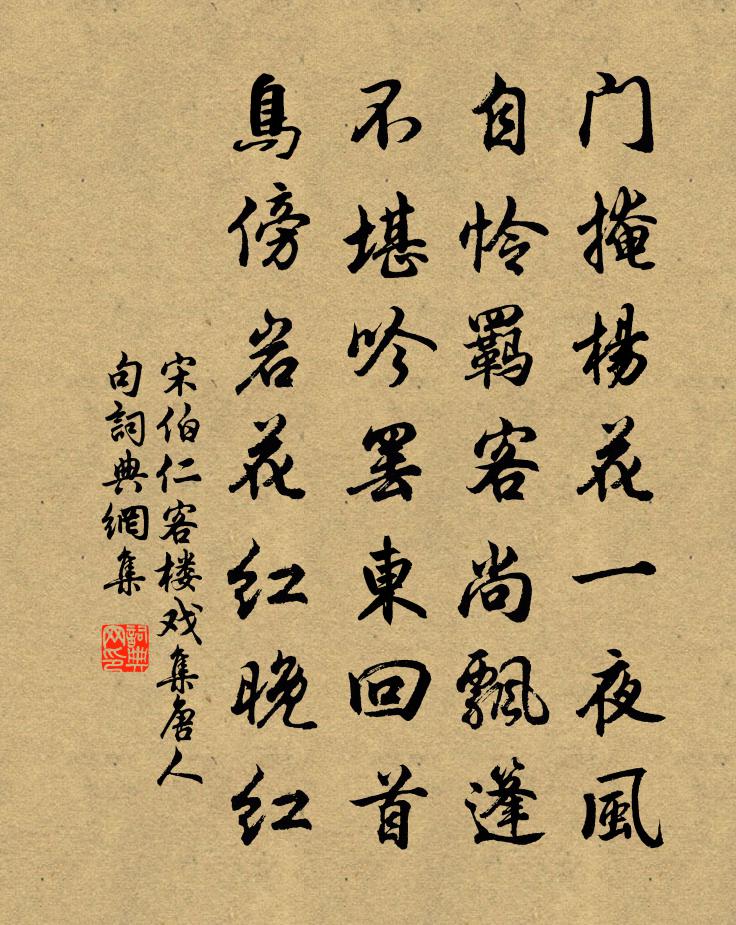 门掩楊花一夜風
自怜羈客尚飄蓬
不堪吟罢東回首
鳥傍岩花红晚红
宋伯仁客楼戏集唐人
句詞典網集
詞典网印